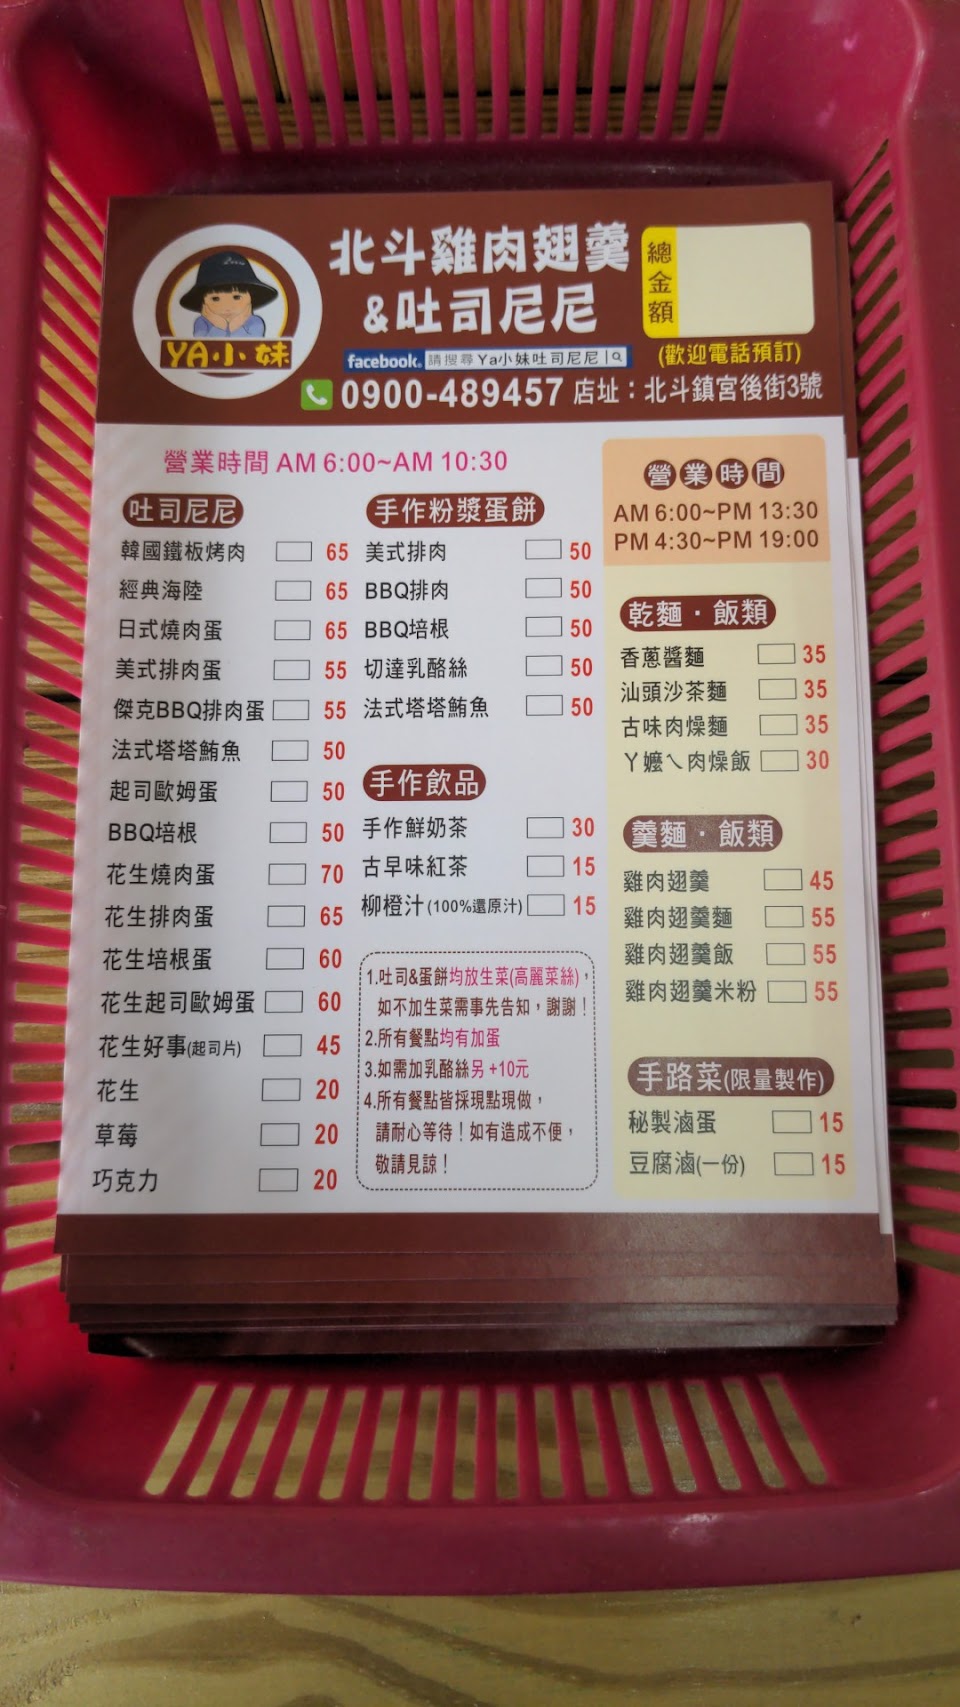 北斗雞肉翅羹
&吐司尼尼
總金額
YA小妹
facebook. 請搜尋 Ya小妹吐司尼尼
(歡迎電話預訂)
0900-489457 店址：北斗鎮宮後街3號
營業時間 AM 6:00~AM 10:30
吐司尼尼
韓國鐵板烤肉 65
經典海陸 65
日式燒肉蛋 65
美式排肉蛋 55
傑克BBQ排肉蛋 55
法式塔塔鮪魚 50
起司歐姆蛋 50
BBQ培根 50
花生燒肉蛋 70
花生排肉蛋 65
花生培根蛋 60
花生起司歐姆蛋 60
花生好事(起司片) 45
花生 20
草莓 20
巧克力 20
手作粉漿蛋餅
美式排肉 50
BBQ排肉 50
BBQ培根 50
切達乳酪絲 50
法式塔塔鮪魚 50
手作飲品
手作鮮奶茶 30
古早味紅茶 15
柳橙汁(100%還原汁) 15
1.吐司&蛋餅均放生菜(高麗菜絲)，
如不加生菜需事先告知，謝謝！
2.所有餐點均有加蛋
3.如需加乳酪絲另 +10元
4.所有餐點皆採現點現做，
請耐心等待！如有造成不便，
敬請見諒！
營業時間
AM 6:00~PM 13:30
PM 4:30~PM 19:00
乾麵．飯類
香蔥醬麵 35
汕頭沙茶麵 35
古味肉燥麵 35
ㄚ嬤ㄟ肉燥飯 30
羹麵．飯類
雞肉翅羹 45
雞肉翅羹麵 55
雞肉翅羹飯 55
雞肉翅羹米粉 55
手路菜(限量製作)
秘製滷蛋 15
豆腐滷(一份) 15